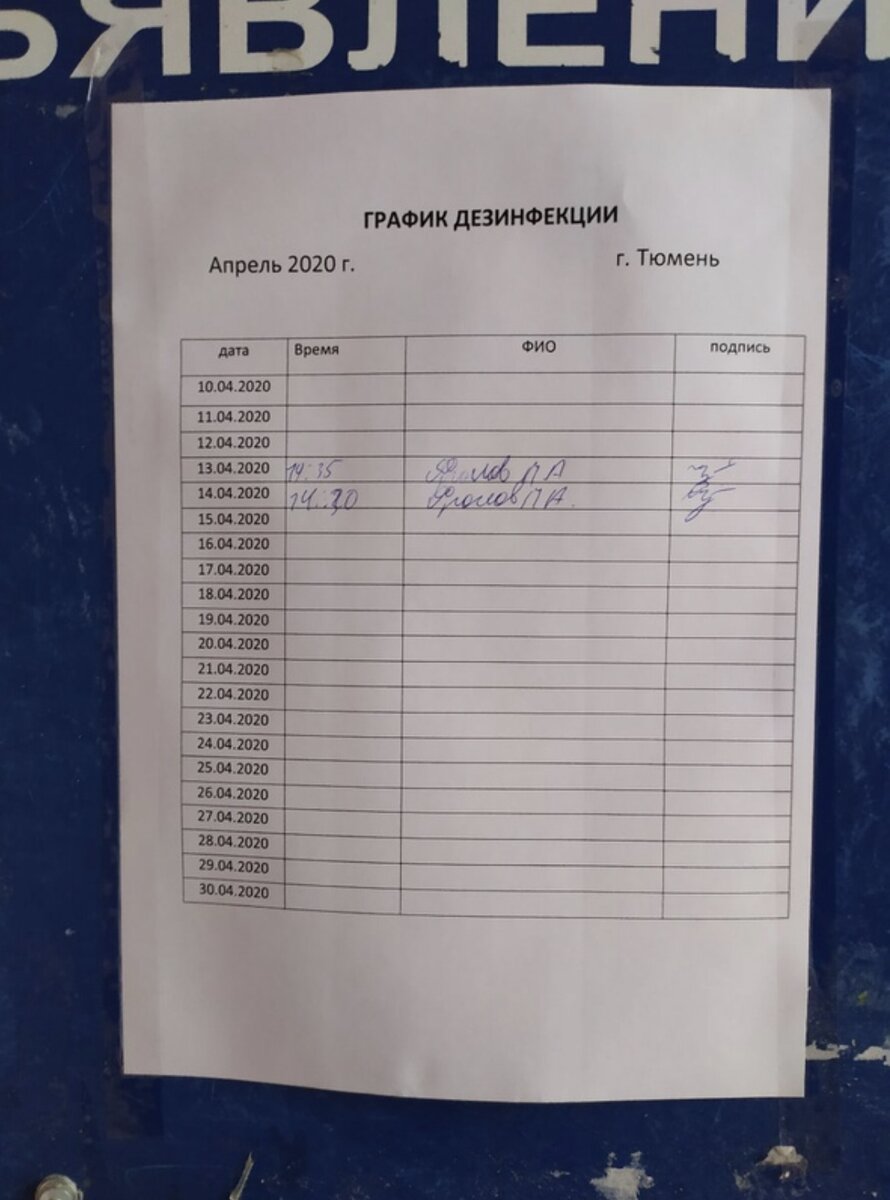 ЪЯВЛЕНИ
ГРАФИК ДЕЗИНФЕКЦИИ
Апрель 2020 г. г. Тюмень
дата Время ФИО подпись
10.04.2020
11.04.2020
12.04.2020
13.04.2020 14:35
14.04.2020 Фролов П А.
15.04.2020
16.04.2020
17.04.2020
18.04.2020
19.04.2020
20.04.2020
21.04.2020
22.04.2020
23.04.2020
24.04.2020
25.04.2020
26.04.2020
27.04.2020
28.04.2020
29.04.2020
30.04.2020